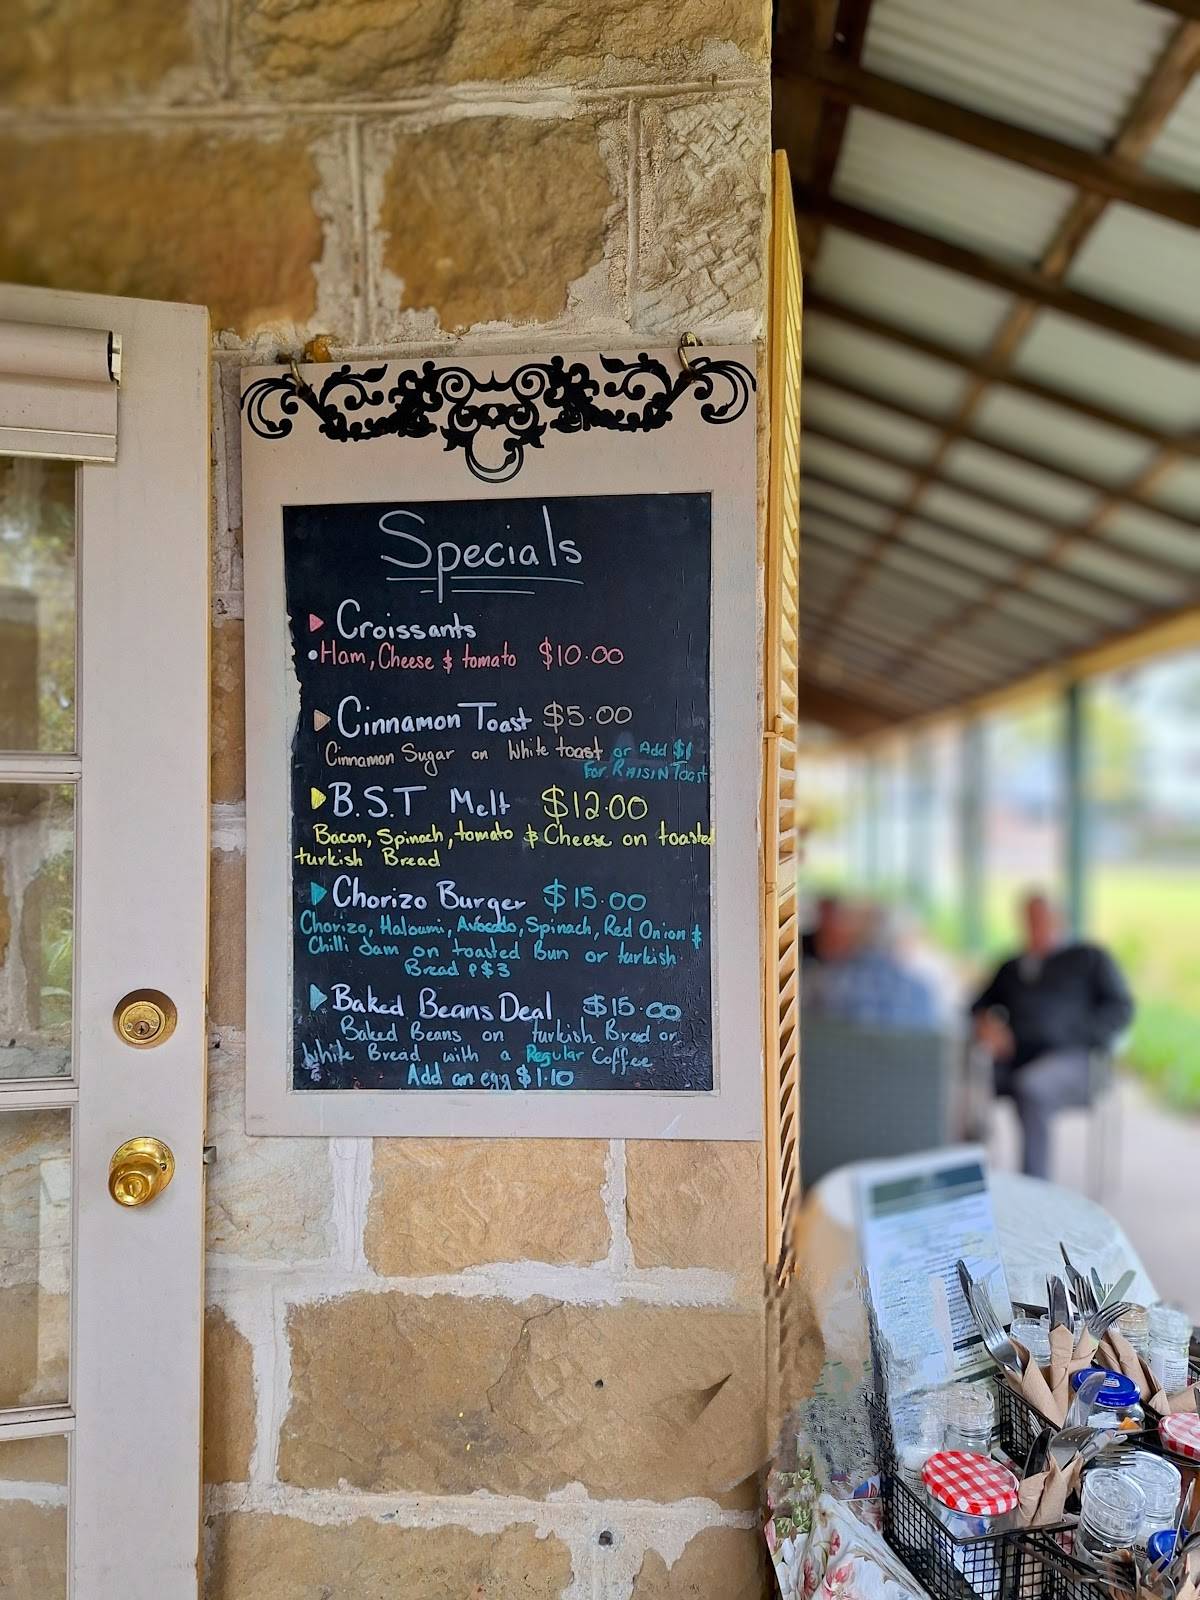 Specials
Croissants
• Ham, Cheese & tomato $10.00
Cinnamon Toast $5.00
Cinnamon Sugar on White toast or Add $1
For RAISIN Toast
B.S.T Melt $12.00
Bacon, Spinach, tomato & Cheese on toasted
turkish Bread
Chorizo Burger $15.00
Chorizo, Haloumi, Avocado, Spinach, Red Onion &
Chilli Jam on toasted Bun or turkish
Bread P$3
Baked Beans Deal $15.00
Baked Beans on turkish Bread or
White Bread with a Regular Coffee
Add an egg $1.10